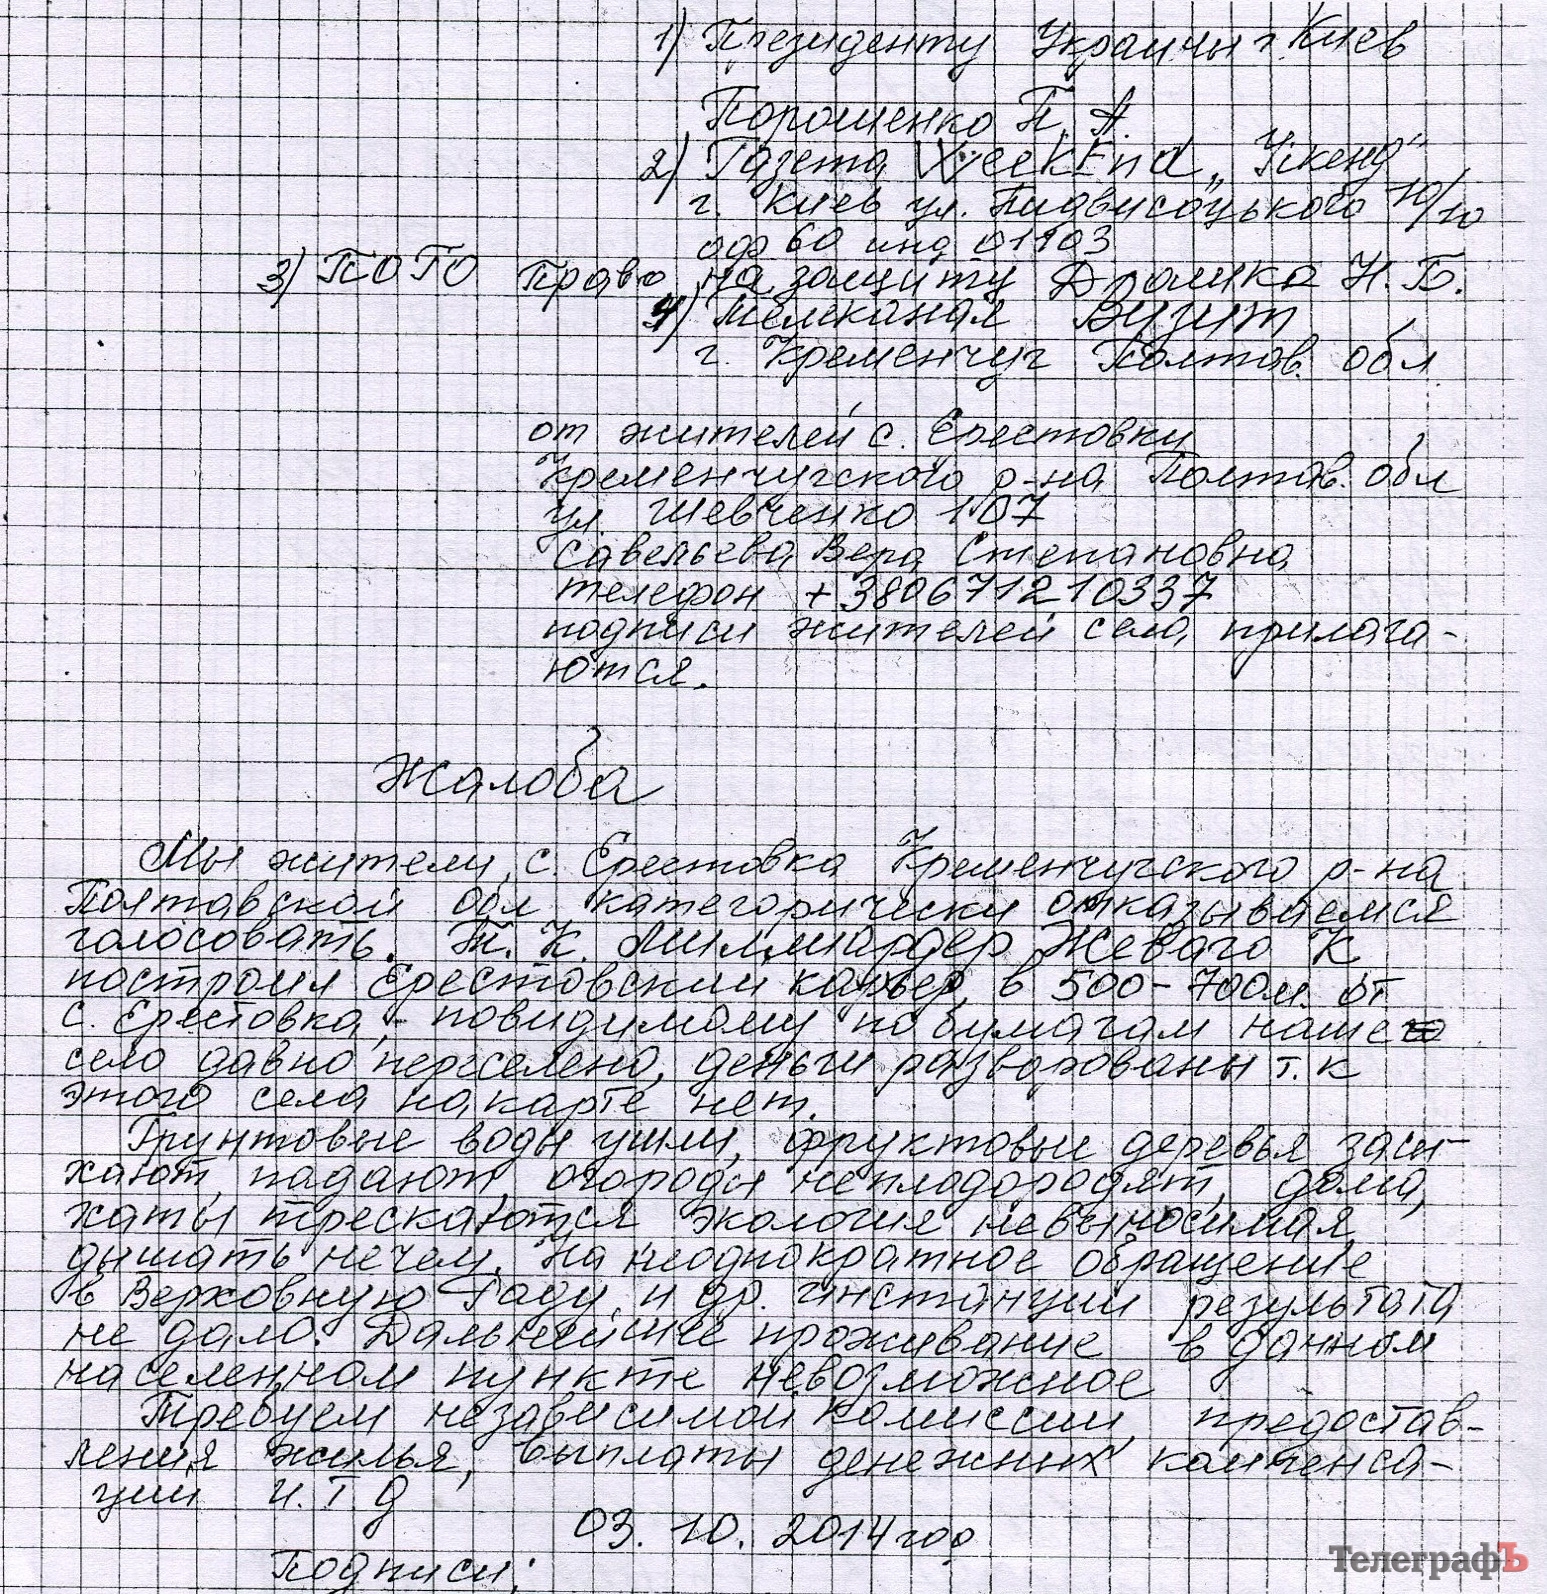 1) Президенту Украины г. Киев
Порошенко П. А.
2) Газета WeekEnd „Уикенд"
г. Киев ул. Пидвисоцького 10/10
оф 60 инд 01103
3) ПОГО Право на защиту Дролика Н. Б.
4) Телеканал Визит
г. Кременчуг Полтав. обл
от жителей с. Ерестовки
Кременчугского р-на Полтав. обл
ул Шевченко 107
Савельева Вера Степановна
телефон +380671210337
подписи жителей села прилага-
ются.
Жалоба
Мы жители с. Ерестовка Кременчугского р-на
Полтавской обл категорически отказываемся
голосовать. Т. К. Миллиардер Жеваго К
построил Ерестовский карьер, в 500-700м. от
с. Ерестовка, - повидимому по бумагам наше
село давно переселено, деньги разворованы т. к
этого села на карте нет.
Грунтовые воды ушли, фруктовые деревья засы-
хают, падают, огороды неплодородят, дома,
хаты трескаются экология невыносимая,
дышать нечем. На неоднократное обращение
в Верховную Раду, и др. инстанции результата
не дало. Дальнейшее проживание в данном
населенном пункте невозможное
Требуем независимой комиссии, предостав-
ления жилья, выплаты денежных компенса-
ции и. т. д
03. 10. 2014 год
Подписи:
ТелеграфЪ